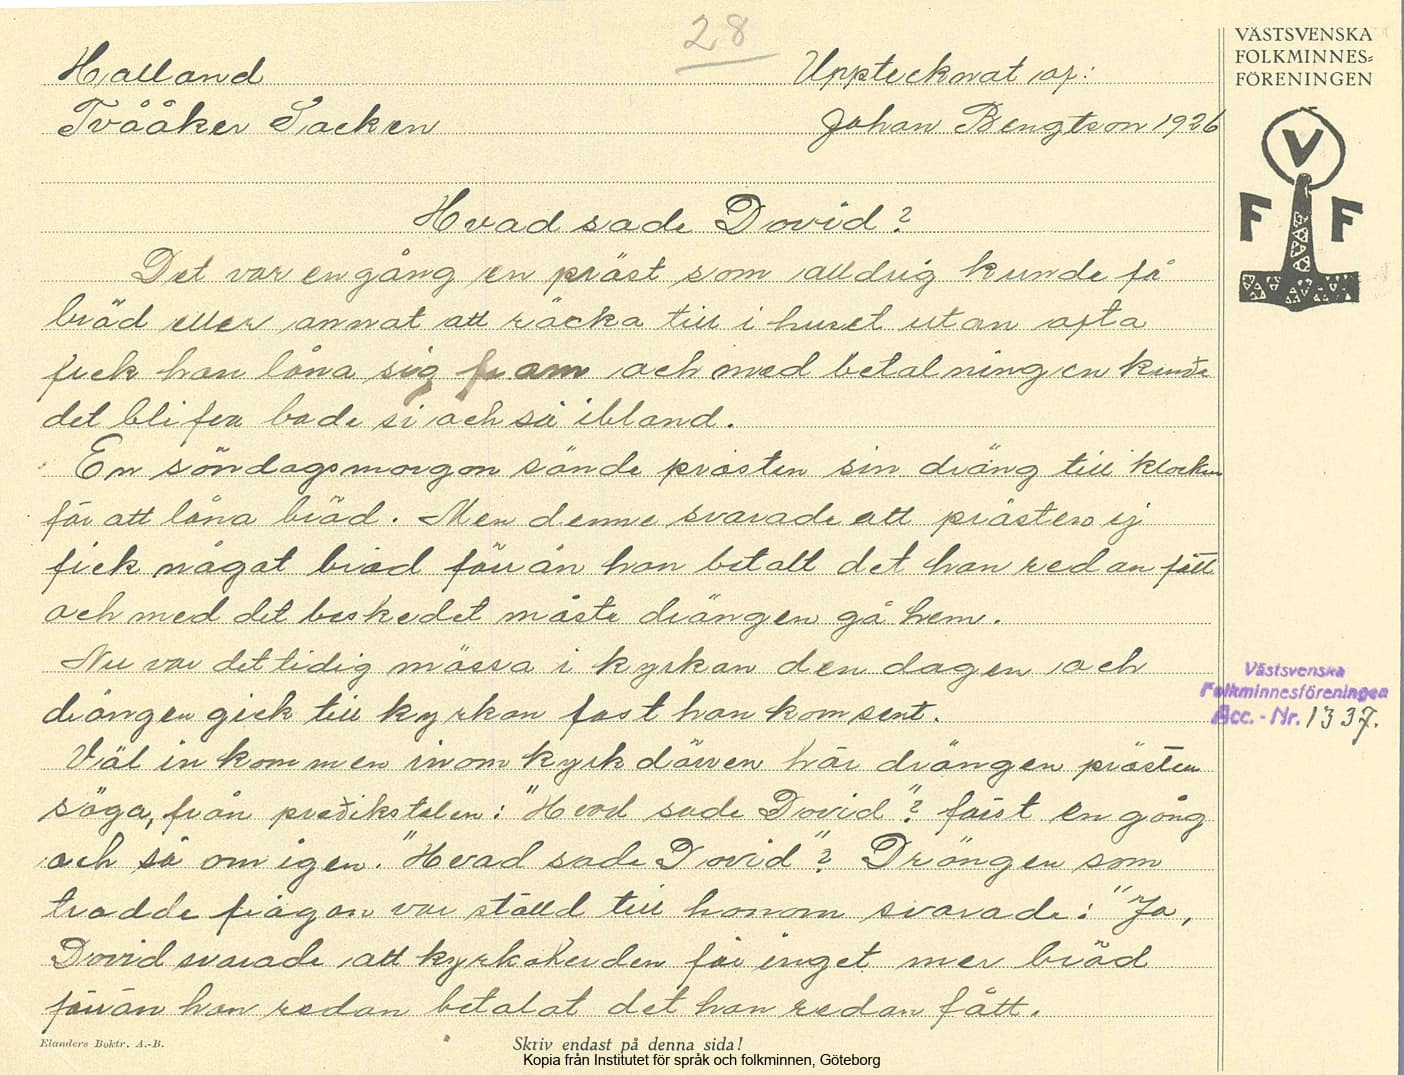 28
VÄSTSVENSKA
FOLKMINNES=
FÖRENINGEN
V
F F
Halland
Upptecknat af:
Tvååker Socken
Johan Bengtson 1926
Hvad sade David?
Det var en gång en präst som alldrig kunde få
bröd eller annat att räcka till i huset utan ofta
fick han låna sig fram och med betalningen kunde
det blifva både si och så ibland.
En söndagsmorgon sände prästen sin dräng till klocken
för att låna bröd. Men denne svarade att prästen ej
fick något bröd förrän han betalt det han redan fått
och med det beskedet måste drängen gå hem.
Nu var det tidig mässa i kyrkan den dagen och
drängen gick till kyrkan fast han kom sent.
Väl in kommen inom kyrkdörren hör drängen prästen
säga, från predikstolen: "Hvad sade David"? först en gång
och så om igen. "Hvad sade David"? Drängen som
trodde frågan var ställd till honom svarade: "Ja,
David svarade att kyrkoherden får inget mer bröd
förrän han redan betalat det han redan fått.
Västsvenska
Folkminnesföreningen
Acc. - Nr. 1337.
Elanders Boktr. A.-B.
Skriv endast på denna sida!
Kopia från Institutet för språk och folkminnen, Göteborg